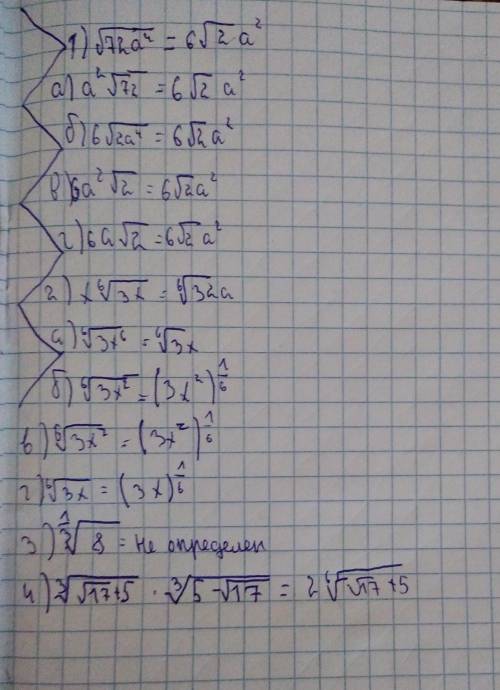 1) √72a⁴ = 6√2 a²
а) a²√72 = 6√2 a²
б) 6√2a⁴ = 6√2 a²
в) 6a²√2 = 6√2a²
г) 6a√2 = 6√2 a²
2) x⁶√3x = ⁶√32a
а) ⁶√3x⁶ = ⁶√3x
б) ⁶√3x² = (3x²)^1/6
в) ⁶√3x² = (3x²)^1/6
г) ⁶√3x = (3x)^1/6
3) ^1/3√8 = не определен
4) ³√√17+5 · ³√5-√17 = 2 ⁶√√17+5